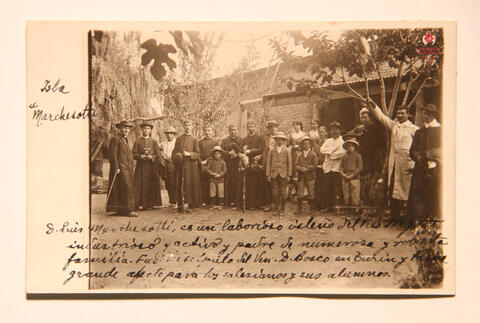 Isla
Marchesotti
D. Luis Marchesotti, es un laborioso isleño del
industrioso y activo y padre de numerosa y robusta
familia. Fué discípulo del Ven. D. Bosco en Turin y tiene
grande afecto para los salesianos y sus alumnos.